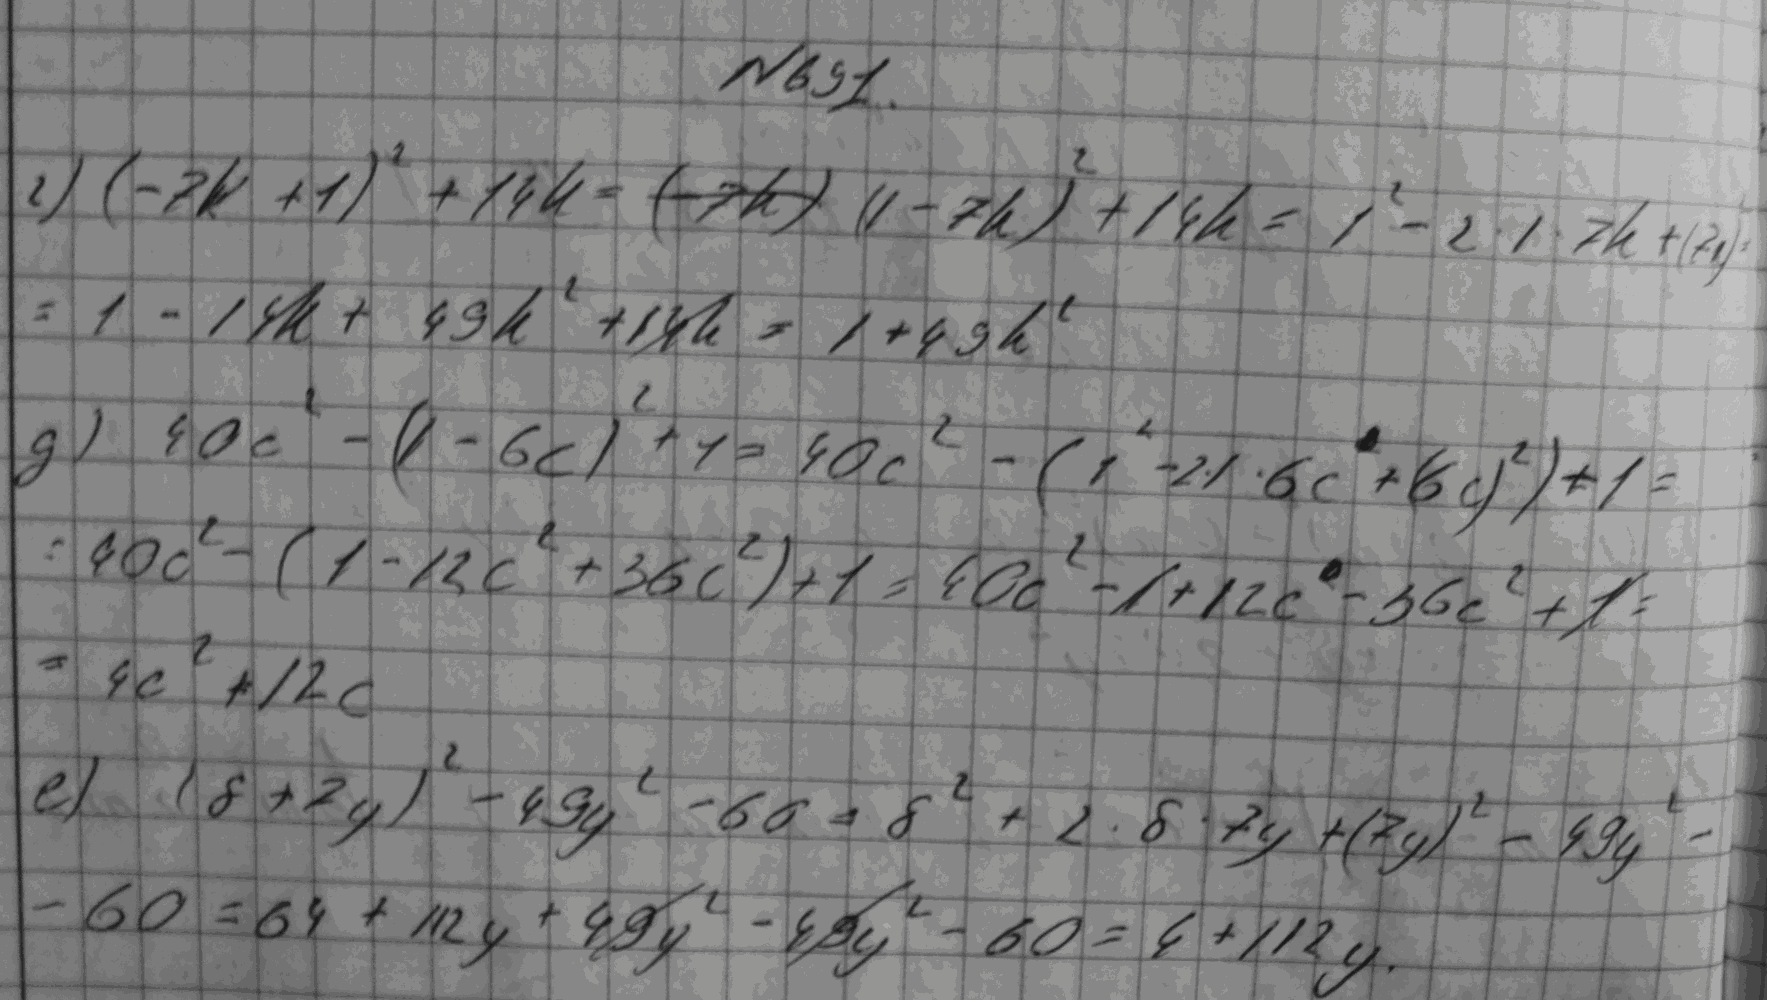 №691.
г) (-7k +1)² + 14k = (1 - 7k)² + 14k = 1² - 2·1·7k +(7k)²
= 1 - 14k + 49k² + 14k = 1 + 49k²
д) 40c² - (1 - 6c)² + 1 = 40c² - (1² - 2·1·6c + (6c)²) + 1 =
= 40c² - (1 - 12c² + 36c²) + 1 = 40c² - 1 + 12c - 36c² + 1 =
= 4c² + 12c
е) (8 + 7y)² - 49y² - 60 = 8² + 2·8·7y + (7y)² - 49y² -
- 60 = 64 + 112y + 49y² - 49y² - 60 = 4 + 112y.